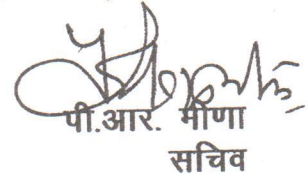 पी.आर. मीणा
सचिव